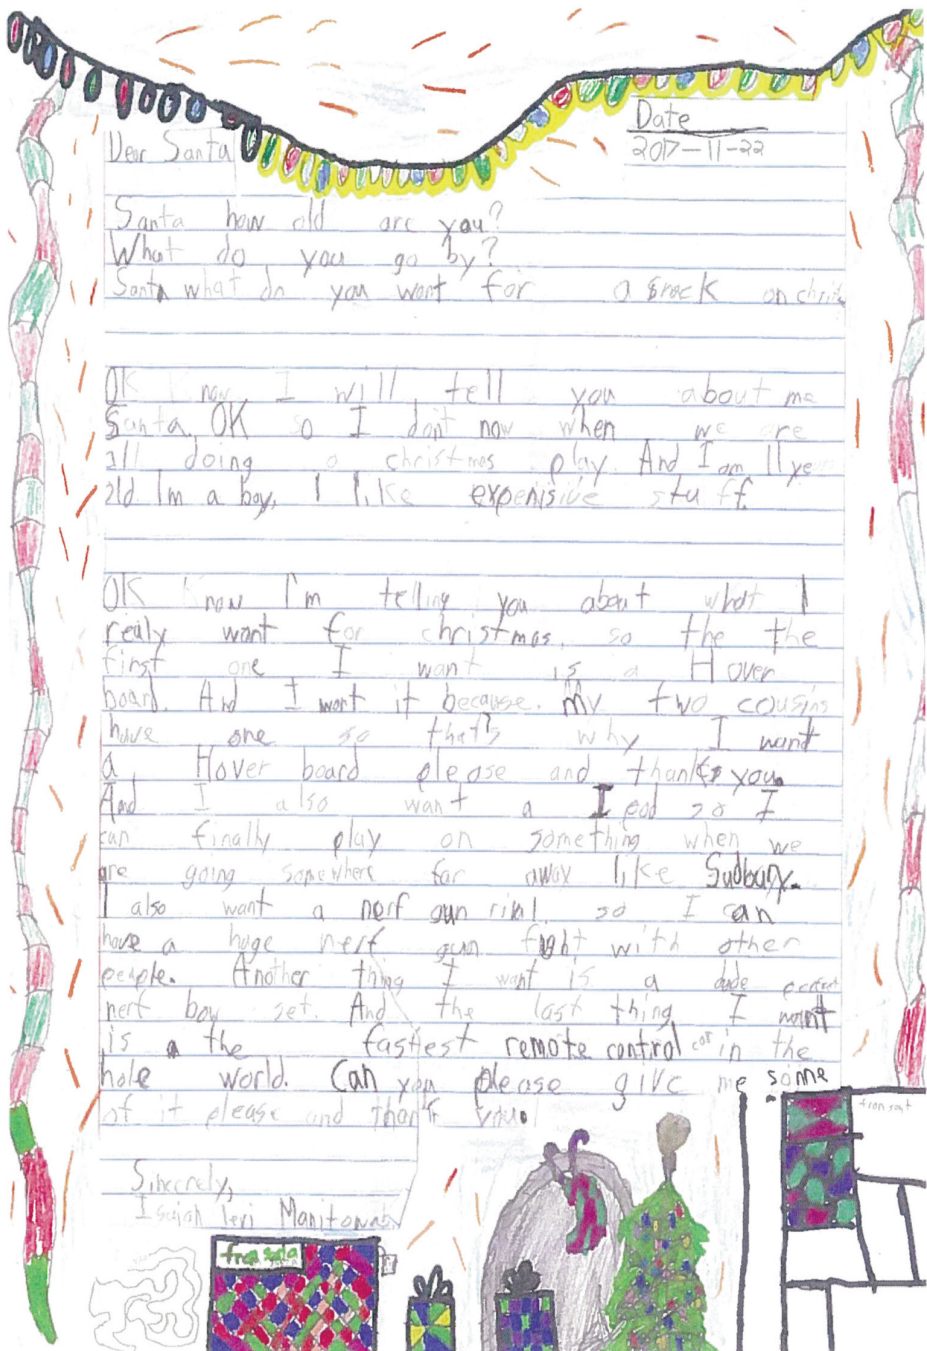 Date
2017-11-22
Dear Santa
Santa how old are you?
What do you go by?
Santa what do you want for a snack on chris
OK know I will tell you about me
Santa. OK so I don't now when we are
all doing a christmas play. And I am 11 years
old Im a boy, I like expenisive stuff.
OK know I'm telling you about what I
realy want for christmas. so the the
first one I want is a Hover
board. And I want it because. My two cousins
have one so that's why I want
a Hover board please and thank you.
And I also want a I pod so I
can finally play on something when we
are going somewhere far away like Sudbury.
I also want a nerf gun rival. so I can
have a huge nerf gun fight with other
people. Another thing I want is a dude perfect
nerf bow set. And the last thing I want
is a the fastest remote control car in the
hole world. Can you please give me some
of it please and thank you.
Sincerely,
Isaiah levi
from santa